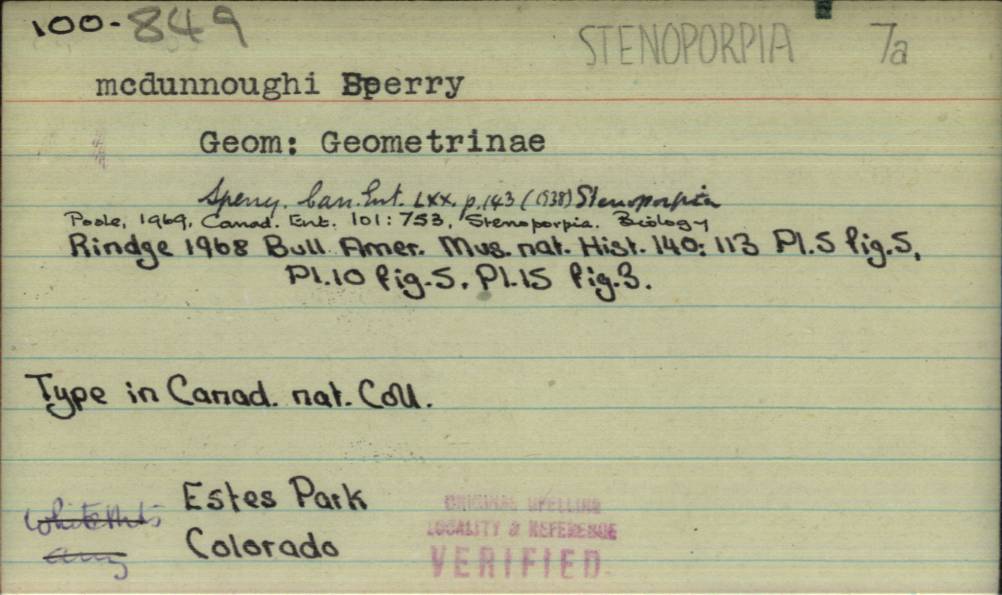 100-849
STENOPORPIA 7a
mcdunnoughi Sperry
Geom: Geometrinae
Sperry. Can. Ent. LXX. p.143 (1938) Stenoporpia
Poole, 1969, Canad. Ent. 101: 753, Stenoporpia. Biology
Rindge 1968 Bull. Amer. Mus. nat. Hist. 140: 113 Pl.5 fig.5,
Pl.10 fig.5. Pl.15 fig.3.
Type in Canad. nat. Coll.
Estes Park
White Mts
Colorado
ORIGINAL SPELLING
LOCALITY & REFERENCE
VERIFIED